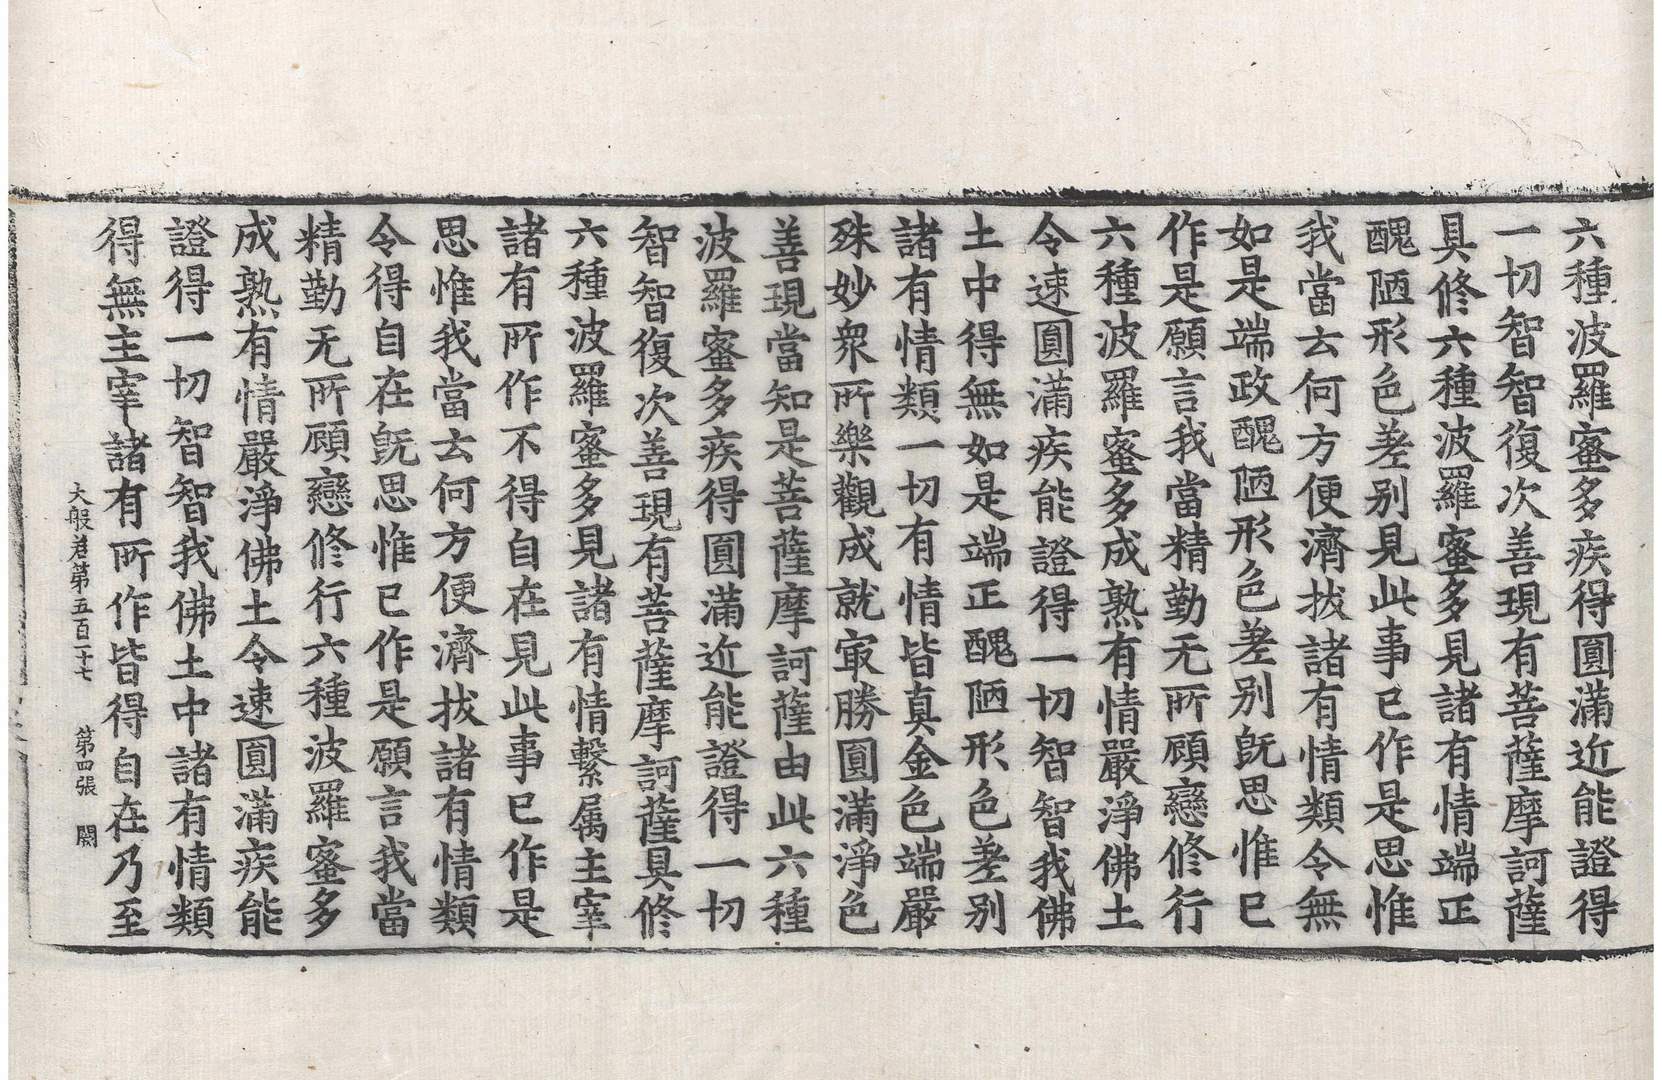 六種波羅蜜多疾得圓滿近能證得
一切智智復次善現有菩薩摩訶薩
具修六種波羅蜜多見諸有情端正
醜陋形色差别見此事已作是思惟
我當云何方便濟拔諸有情類令無
如是端政醜陋形色差别旣思惟已
作是願言我當精勤无所顧戀修行
六種波羅蜜多成熟有情嚴淨佛土
令速圓滿疾能證得一切智智我佛
土中得無如是端正醜陋形色差别
諸有情類一切有情皆真金色端嚴
殊妙衆所樂觀成就㝡勝圓滿淨色
善現當知是菩薩摩訶薩由此六種
波羅蜜多疾得圓滿近能證得一切
智智復次善現有菩薩摩訶薩具修
六種波羅蜜多見諸有情繫属主宰
諸有所作不得自在見此事已作是
思惟我當云何方便濟拔諸有情類
令得自在旣思惟已作是願言我當
精勤无所顧戀修行六種波羅蜜多
成熟有情嚴淨佛土令速圓滿疾能
證得一切智智我佛土中諸有情類
得無主宰諸有所作皆得自在乃至
大般若第五百一十七 第四張 闕